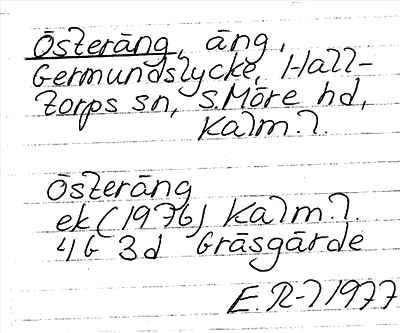 Österäng, äng,
Germundslycke, Hall-
torps sn, S.Möre hd,
Kalm.l.
Österäng
ek (1976) Kalm.l.
4G 3d Gräsgärde
E.R-l 1977